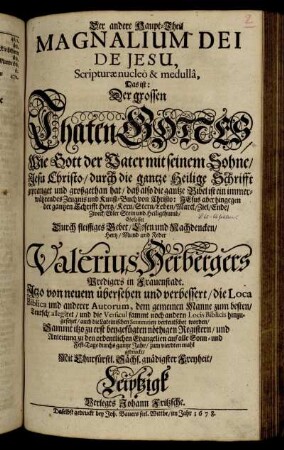 Der andere Haupt-Theil
MAGNALIUM DEI
DE JESU,
Scripturæ nucleo & medullâ,
Das ist:
Der grossen
Thaten GOTTES/
Wie Gott der Vater mit seinem Sohne/
Jesu Christo/ durch die gantze Heilige Schrifft
gepranget und großgethan hat/ daß also die gantze Bibel ist ein immer-
währendes Zeugnis und Kunst-Buch von Christo: JESUS aber hingegen
der gantzen Schrifft Hertz/ Kern/ Stern/ Leben/ Marck/ Ziel/ Ende/
Edler Stein und Heiligthumb/
Durch fleissiges Beten/ Lesen und Nachdencken/
Hertz/ Mund und Feder
Valerius Herbergers
Predigers in Frauenstadt.
Itzo von neuem übersehen und verbessert/ die Loca
Biblica und andere Autorum, dem gemeinen Manne zum besten/
Teutsch allegiret/ und die Versicul sammt noch andern Locis Biblicis hinzu-
gesetzet/ auch die Lateinischen
Sammt itzo zu erst beygefügten nöthigen Registern/ und
Anleitung zu den ordentlichen Evangelien auf alle Sonn- und
Fest-Tage durchs gantze Jahr/
gedruckt/
Mit Churfürstl. Sächs. gnädigster Freyheit/
Leipzigk
Verlegts Johann Fritzsche.
Daselbst gedruckt bey Joh. Bauers sel. Wittbe/ im Jahr 1678.